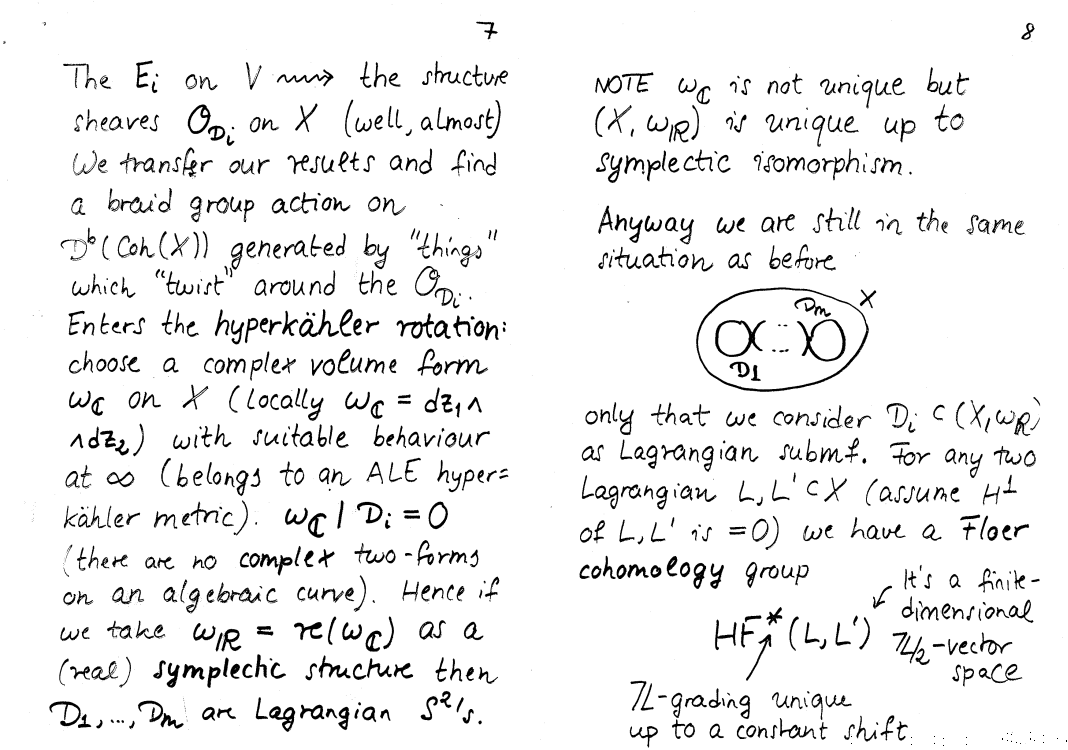 7
The Eᵢ on V ⟿ the structure
sheaves 𝒪_Dᵢ on X (well, almost)
We transfer our results and find
a braid group action on
Dᵇ(Coh(X)) generated by "things"
which "twist" around the 𝒪_Dᵢ.
Enters the hyperkähler rotation:
choose a complex volume form
ω_ℂ on X (locally ω_ℂ = dz₁∧
∧dz₂) with suitable behaviour
at ∞ (belongs to an ALE hyper=
kähler metric). ω_ℂ | Dᵢ = 0
(there are no complex two-forms
on an algebraic curve). Hence if
we take ω_ℝ = re(ω_ℂ) as a
(real) symplectic structure then
D₁, ..., Dₘ are Lagrangian S²'s.
8
NOTE ω_ℂ is not unique but
(X, ω_ℝ) is unique up to
symplectic isomorphism.
Anyway we are still in the same
situation as before
X
Dₘ
D1
only that we consider Dᵢ ⊂ (X, ω_ℝ)
as Lagrangian submf. For any two
Lagrangian L, L' ⊂ X (assume H¹
of L, L' is =0) we have a Floer
cohomology group
It's a finite-
dimensional
ℤ/2-vector
space
HF*(L, L')
ℤ-grading unique
up to a constant shift